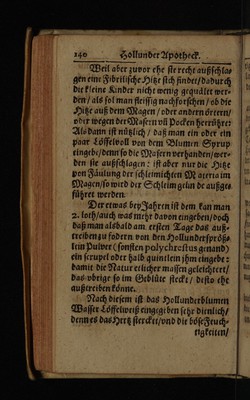 140 Hollunder Apotheck.
Weil aber zuvor ehe sie recht außschla-
gen eine Fibrilische Hitze sich findet/dadurch
die kleine Kinder nicht wenig gequälet wer-
den/ als sol man fleissig nachforschen/ ob die
Hitze auß dem Magen/ oder andern örtern/
oder wegen der Masern un̄ Pocken herrühre:
Alsdann ist nützlich/ daß man ein oder ein
paar Löffelvoll von dem Blumen Syrup
eingebe/denn so die Masern verhanden/wer-
den sie außschlagen: ist aber nur die Hitz
von Fäulung der schleimichten Materia im
Magen/so wird der Schleim gelinde außge-
führet werden.
Der etwas bey Jahren ist dem kan man
2. loth/auch was mehr davon eingeben/doch
daß man alsbald am ersten Tage das auß-
treiben zu fodern von den Hollundersprös-
lein Pulver (sonsten polychrestus genand)
ein scrupel oder halb quintlein ihm eingebe:
damit die Natur etlicher massen geleichtert/
das übrige so im Geblüte stecket/ desto ehe
außtreiben könne.
Nach diesem ist das Hollunderblumen
Wasser Löffelweiß eingegeben sehr dienlich/
denn es das Hertz stercket/und die böse Feuch-
tigkeiten/